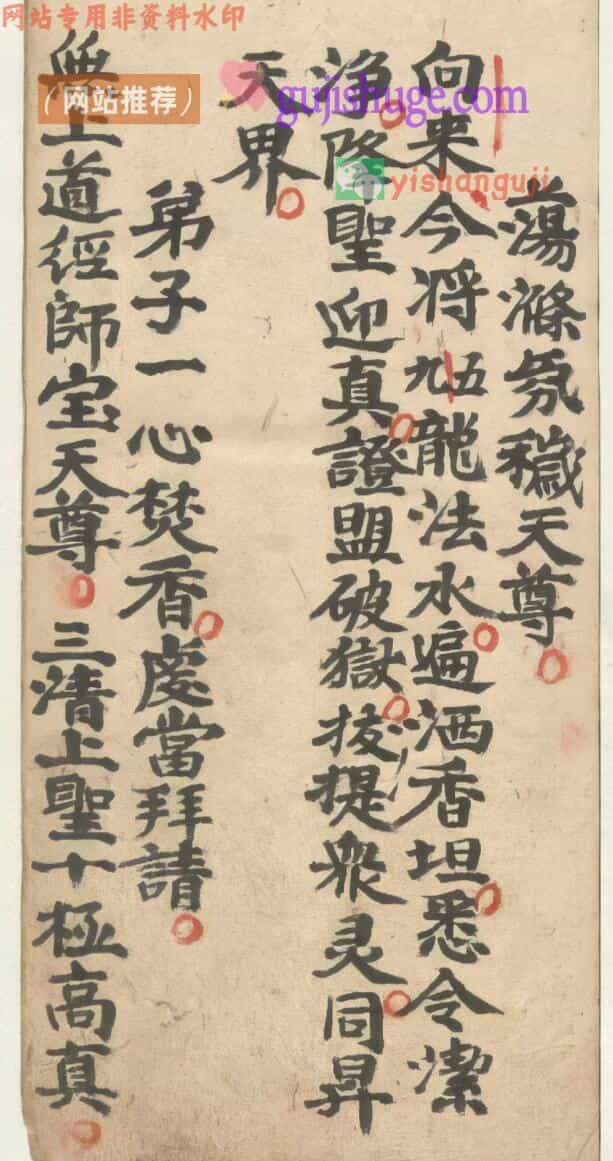 网站专用非资料水印
（网站推荐）
gujishuge.com
yishanguji
蕩滌氛穢天尊
向来今将五九龍法水遍洒香坛悉令潔
净降聖迎真證盟破獄拔提眾灵同昇
天界
弟子一心焚香虔當拜請
無上道經師宝天尊 三清上聖十極高真